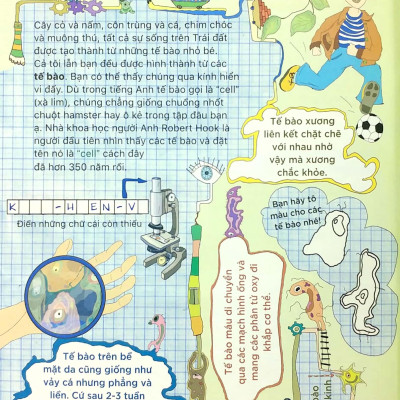 Cây cỏ và nấm, côn trùng và cá, chim chóc
và muông thú, tất cả sự sống trên Trái đất
được tạo thành từ những tế bào nhỏ bé.
Cả tôi lẫn bạn đều được hình thành từ các
tế bào. Bạn có thể thấy chúng qua kính hiển
vi đấy. Dù trong tiếng Anh tế bào gọi là "cell"
(xà lim), chúng chẳng giống chuồng nhốt
chuột hamster hay ô kẻ trong tập đâu bạn
ạ. Nhà khoa học người Anh Robert Hook là
người đầu tiên nhìn thấy các tế bào và đặt
tên nó là "cell" cách đây
đã hơn 350 năm rồi.
K - H EN - V
Điền những chữ cái còn thiếu
Tế bào xương
liên kết chặt chẽ
với nhau nhờ
vậy mà xương
chắc khỏe.
Bạn hãy tô
màu cho các
tế bào nhé!
Tế bào máu di chuyển
qua các mạch hình ống và
mang các phân tử oxy đi
khắp cơ thể.
Tế bào trên bề
mặt da cũng giống như
vảy cá nhưng phẳng và
liền. Cứ sau 2-3 tuần
bào
kinh.